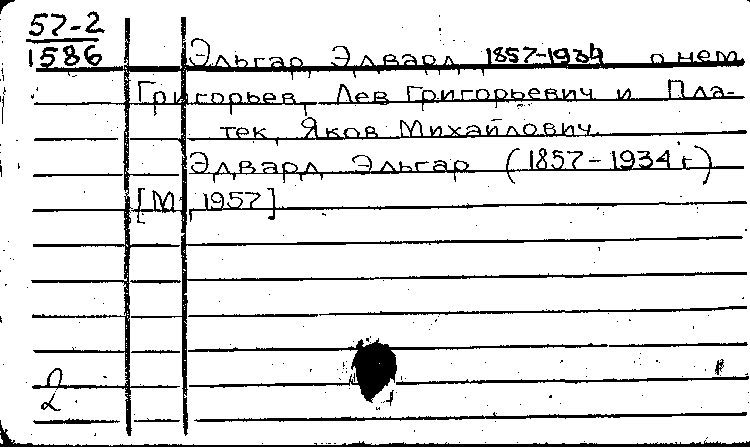 57-2
1586
Эльгар, Эдвард, 1857-1934 о нем
Григорьев, Лев Григорьевич и Пла-
тек, Яков Михайлович.
Эдвард Эльгар (1857-1934 г.)
[М., 1957]
2